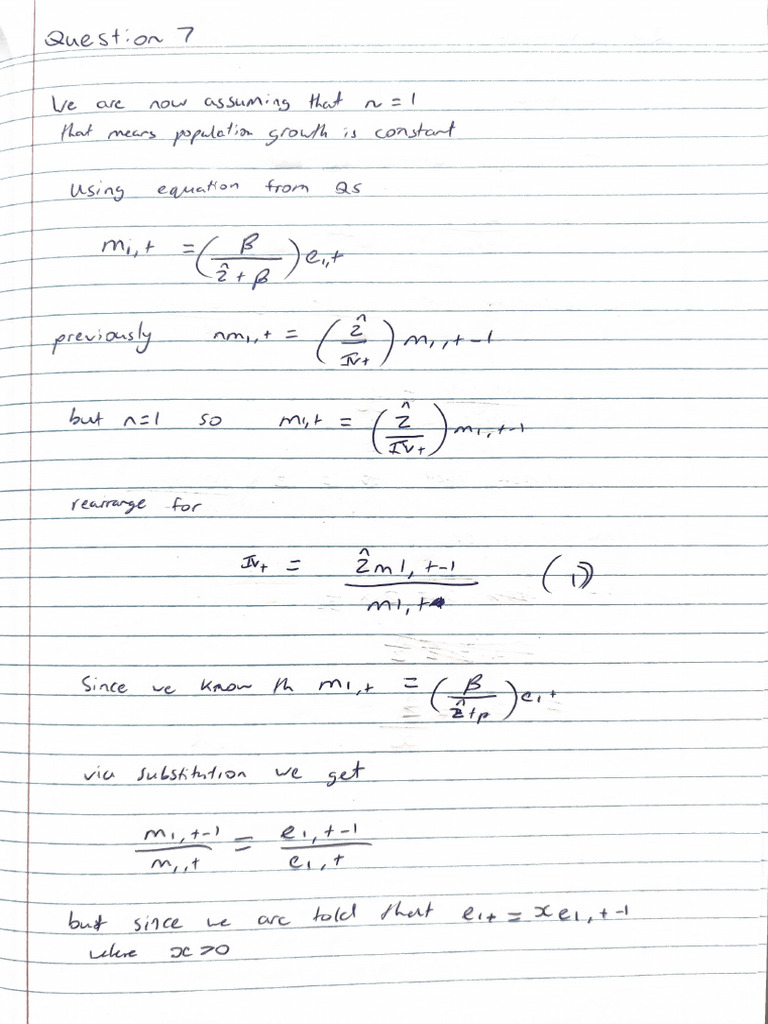 Question 7
We are now assuming that n = 1
that means population growth is constant
Using equation from Q5
m1,t = (β / ẑ + β) e1,t
previously nm1,t = (ẑ / ΠVt) m1,t-1
but n=1 so m1,t = (ẑ / ΠVt) m1,t-1
rearrange for
ΠVt = ẑm1,t-1 / m1,t (1)
Since we know th m1,t = (β / ẑ+β) e1t
via substitution we get
m1,t-1 / m1,t = e1,t-1 / e1,t
but since we are told that e1t = xe1,t-1
where x>0